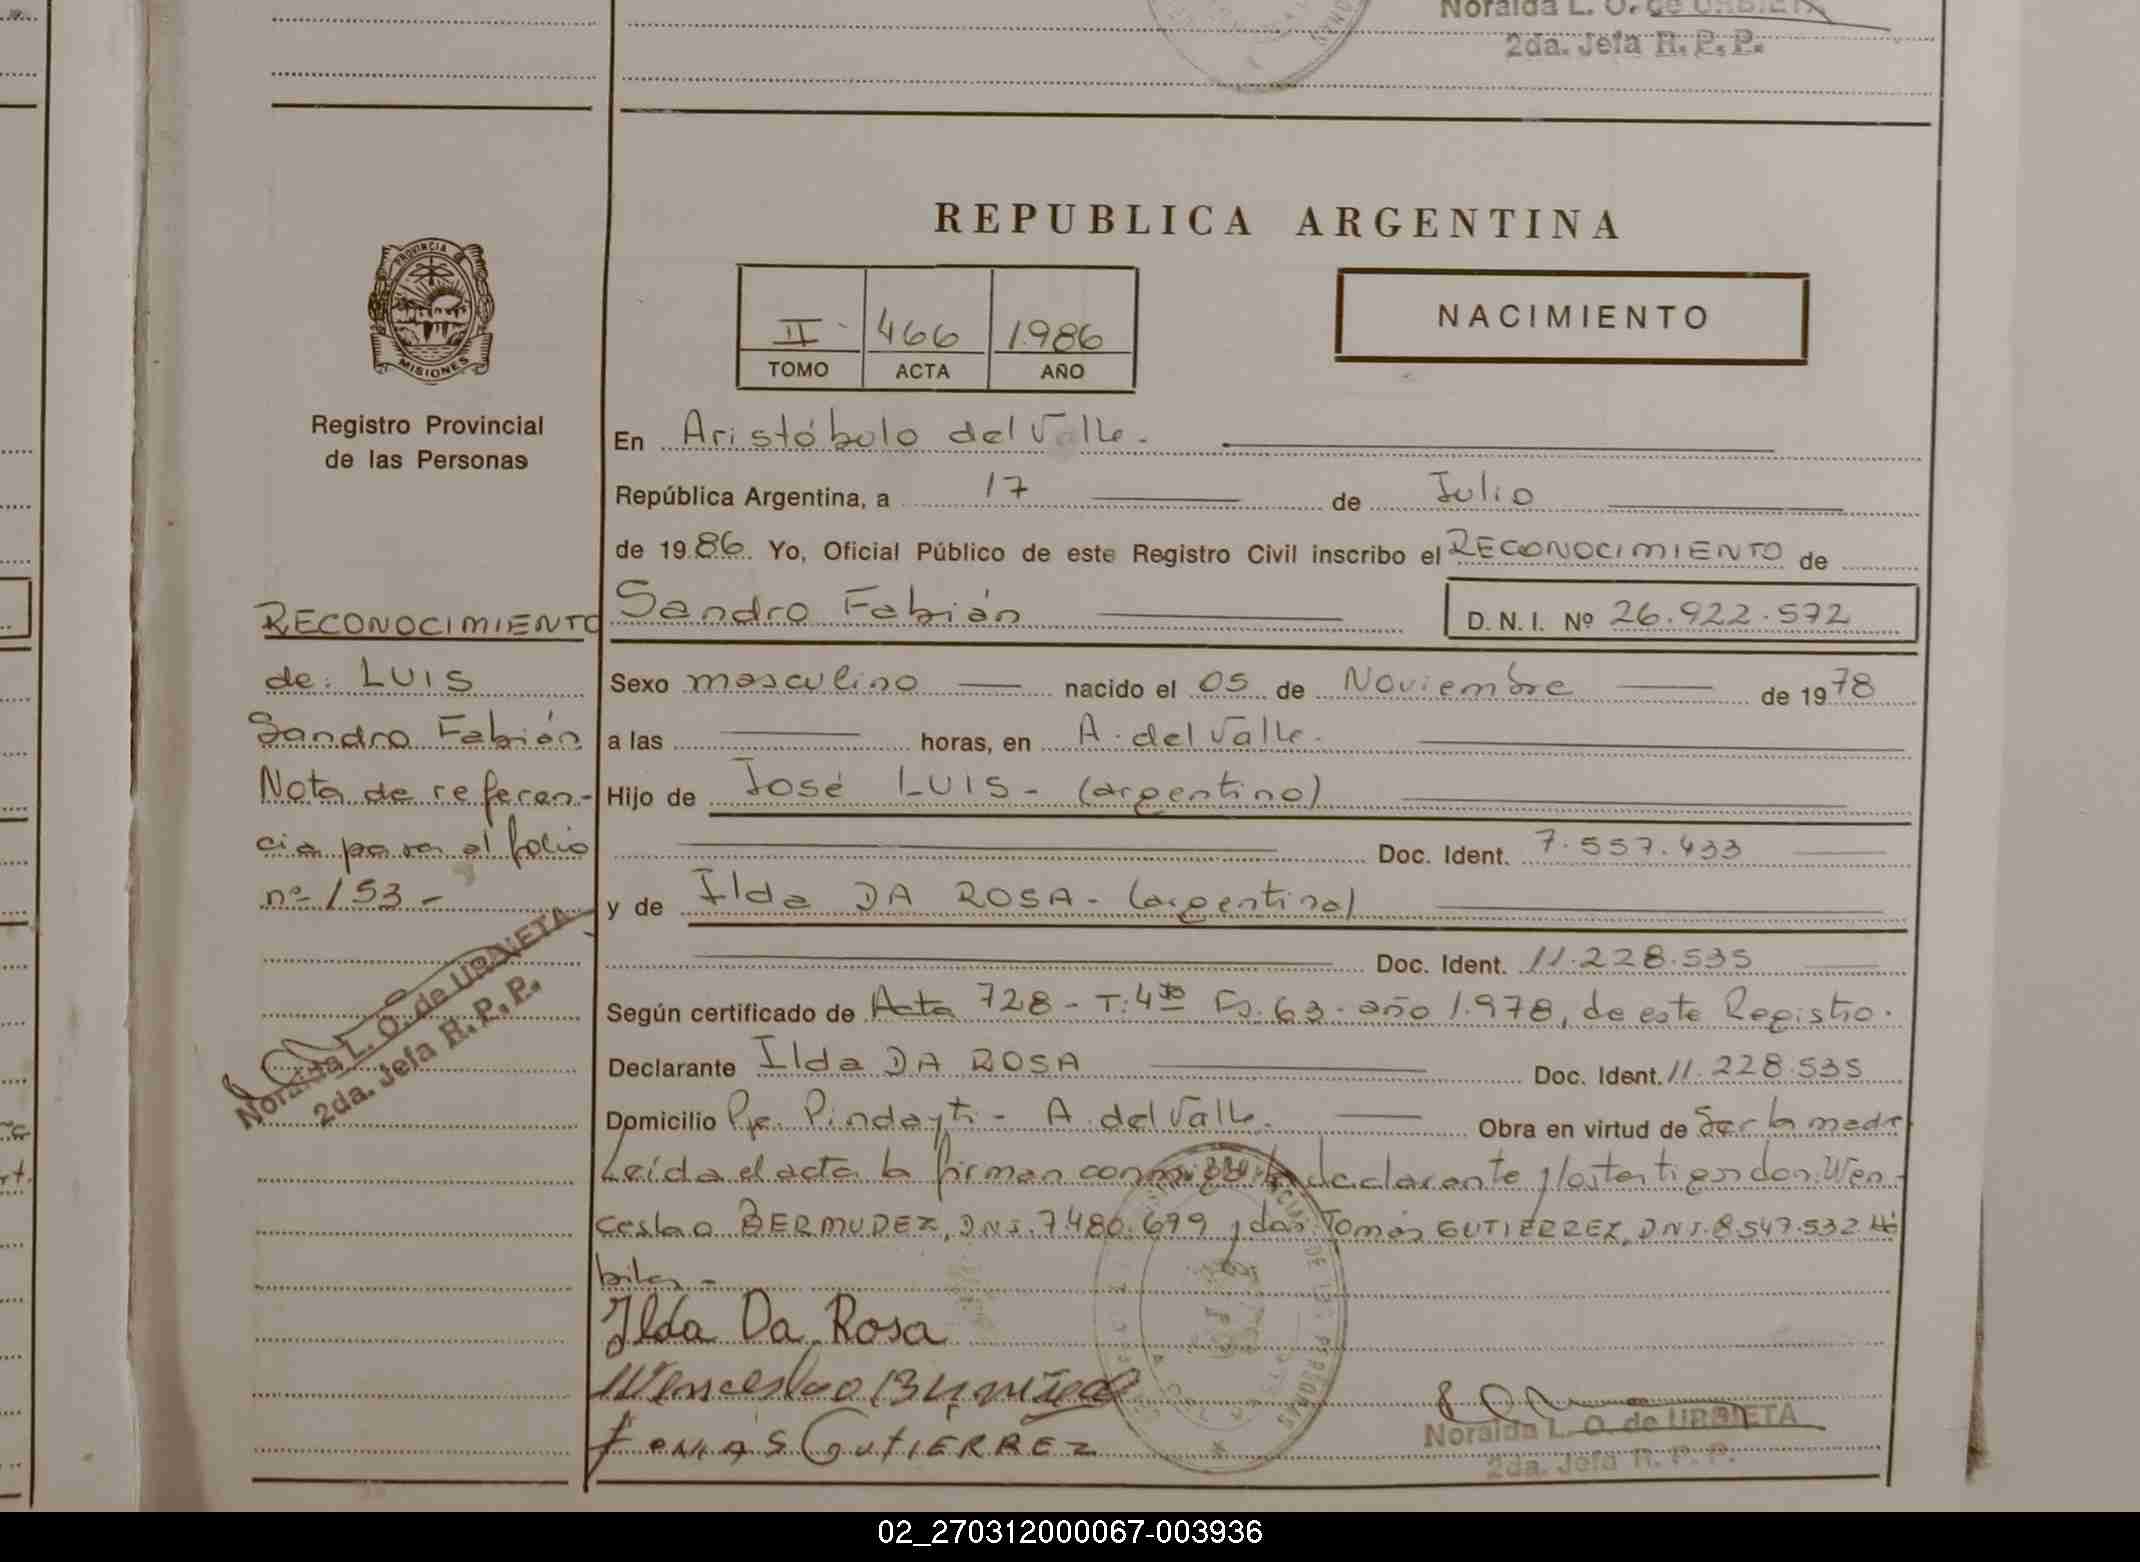 Noralda L. O. de URBIETA
2da. Jefa R. P. P.
REPUBLICA ARGENTINA
PROVINCIA
MISIONES
II 466 1986
TOMO ACTA AÑO
NACIMIENTO
Registro Provincial
de las Personas
En Aristóbulo del Valle.
República Argentina, a 17 de Julio
de 1986. Yo, Oficial Público de este Registro Civil inscribo el RECONOCIMIENTO de
Sandro Fabián D. N. I. Nº 26.922.572
RECONOCIMIENTO
de: LUIS
Sandro Fabián
Nota de referen-
cia para el folio
nº 153-
Noralda L. O. de URBIETA
2da. Jefa R. P. P.
Sexo masculino nacido el 05 de Noviembre de 1978
a las horas, en A. del Valle.
Hijo de José LUIS - (argentino)
Doc. Ident. 7.557.433
y de Ilda DA ROSA - (argentina)
Doc. Ident. 11.228.535
Según certificado de Acta 728 - T: 4to Fs. 63 - año 1.978, de este Registro.
Declarante Ilda DA ROSA Doc. Ident. 11.228.535
Domicilio Pje. Pindayti - A. del Valle. Obra en virtud de Ser la madre
Leída el acta la firman conmigo la declarante y los testigos don: Wen-
ceslao BERMUDEZ, DNI. 7.480.699 y don: Tomás GUTIERREZ, DNI. 8.547.532 Há
biles -
Ilda Da Rosa
Wenceslao
TOMAS GUTIERREZ
Noralda L. O. de URBIETA
2da. Jefa R. P. P.
02_270312000067-003936